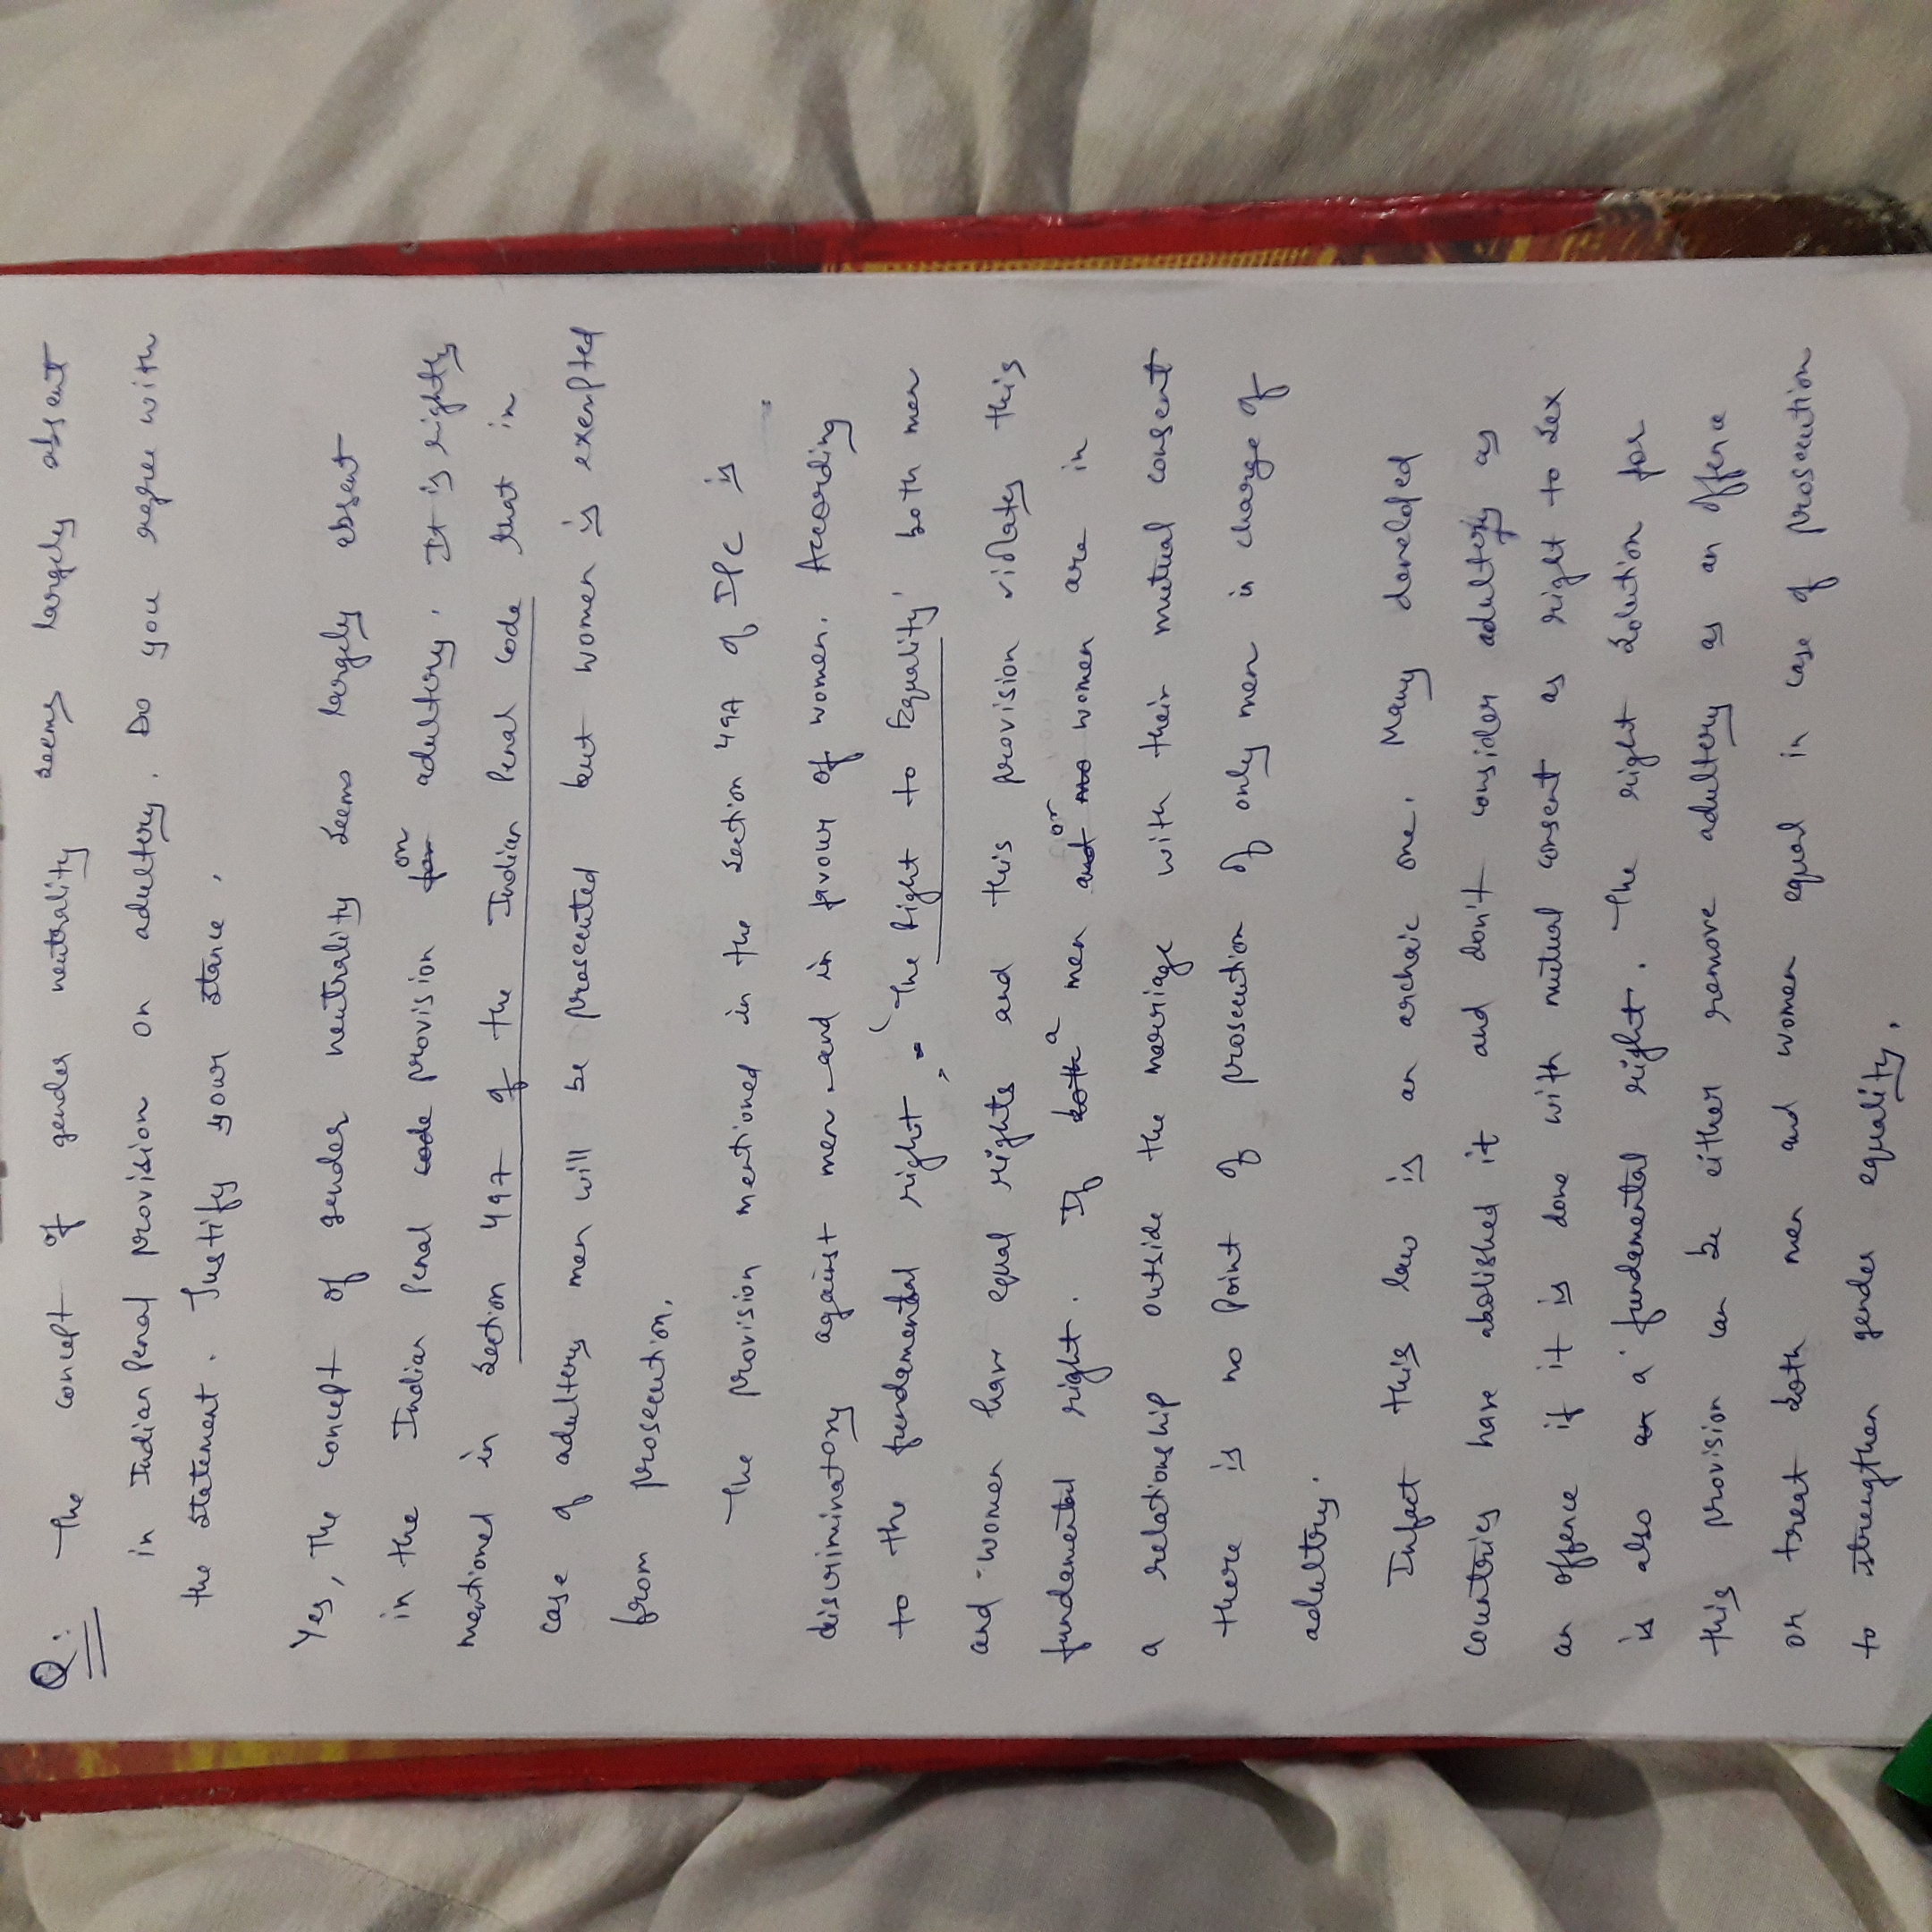 Q: The concept of gender neutrality seems largely absent
in Indian Penal provision on adultery. Do you agree with
the statement. Justify your stance.
Yes, The concept of gender neutrality seems largely absent
in the Indian Penal code provision for on adultery. It is rightly
mentioned in section 497 of the Indian Penal code that in
case of adultery men will be prosecuted but women is exempted
from prosecution.
The provision mentioned in the section 497 of IPC is
discriminatory against men and in favour of women. According
to the fundamental right, 'The Right to Equality' both men
and women have equal rights and this provision violates this
fundamental right. If both a men and or women are in
a relationship outside the marriage with their mutual consent
there is no point of prosecution of only men in charge of
adultry.
Infact this law is an archaic one. Many doveloped
countries have abolished it and don't consider adultery as
an offence if it is done with mutual consent as right to sex
is also an a fundamental right. The right solution for
this provision can be either remove adultery as an offence
or treat both men and women equal in case of prosecution
to strengthen gender equality.